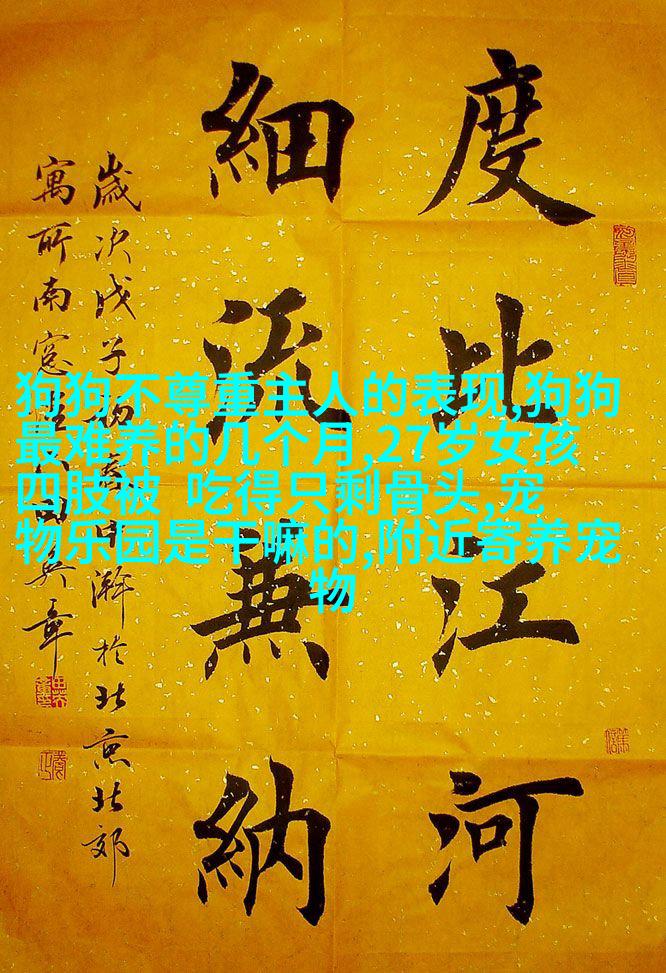 度比江河
細流兼納
歲次戊子初日於北京北郊
寓所南窓田英章
狗狗不尊重主人的表现,狗狗
最难养的几个月,27岁女孩
四肢被 吃得只剩骨头,宠
物乐园是干嘛的,附近寄养宠
物